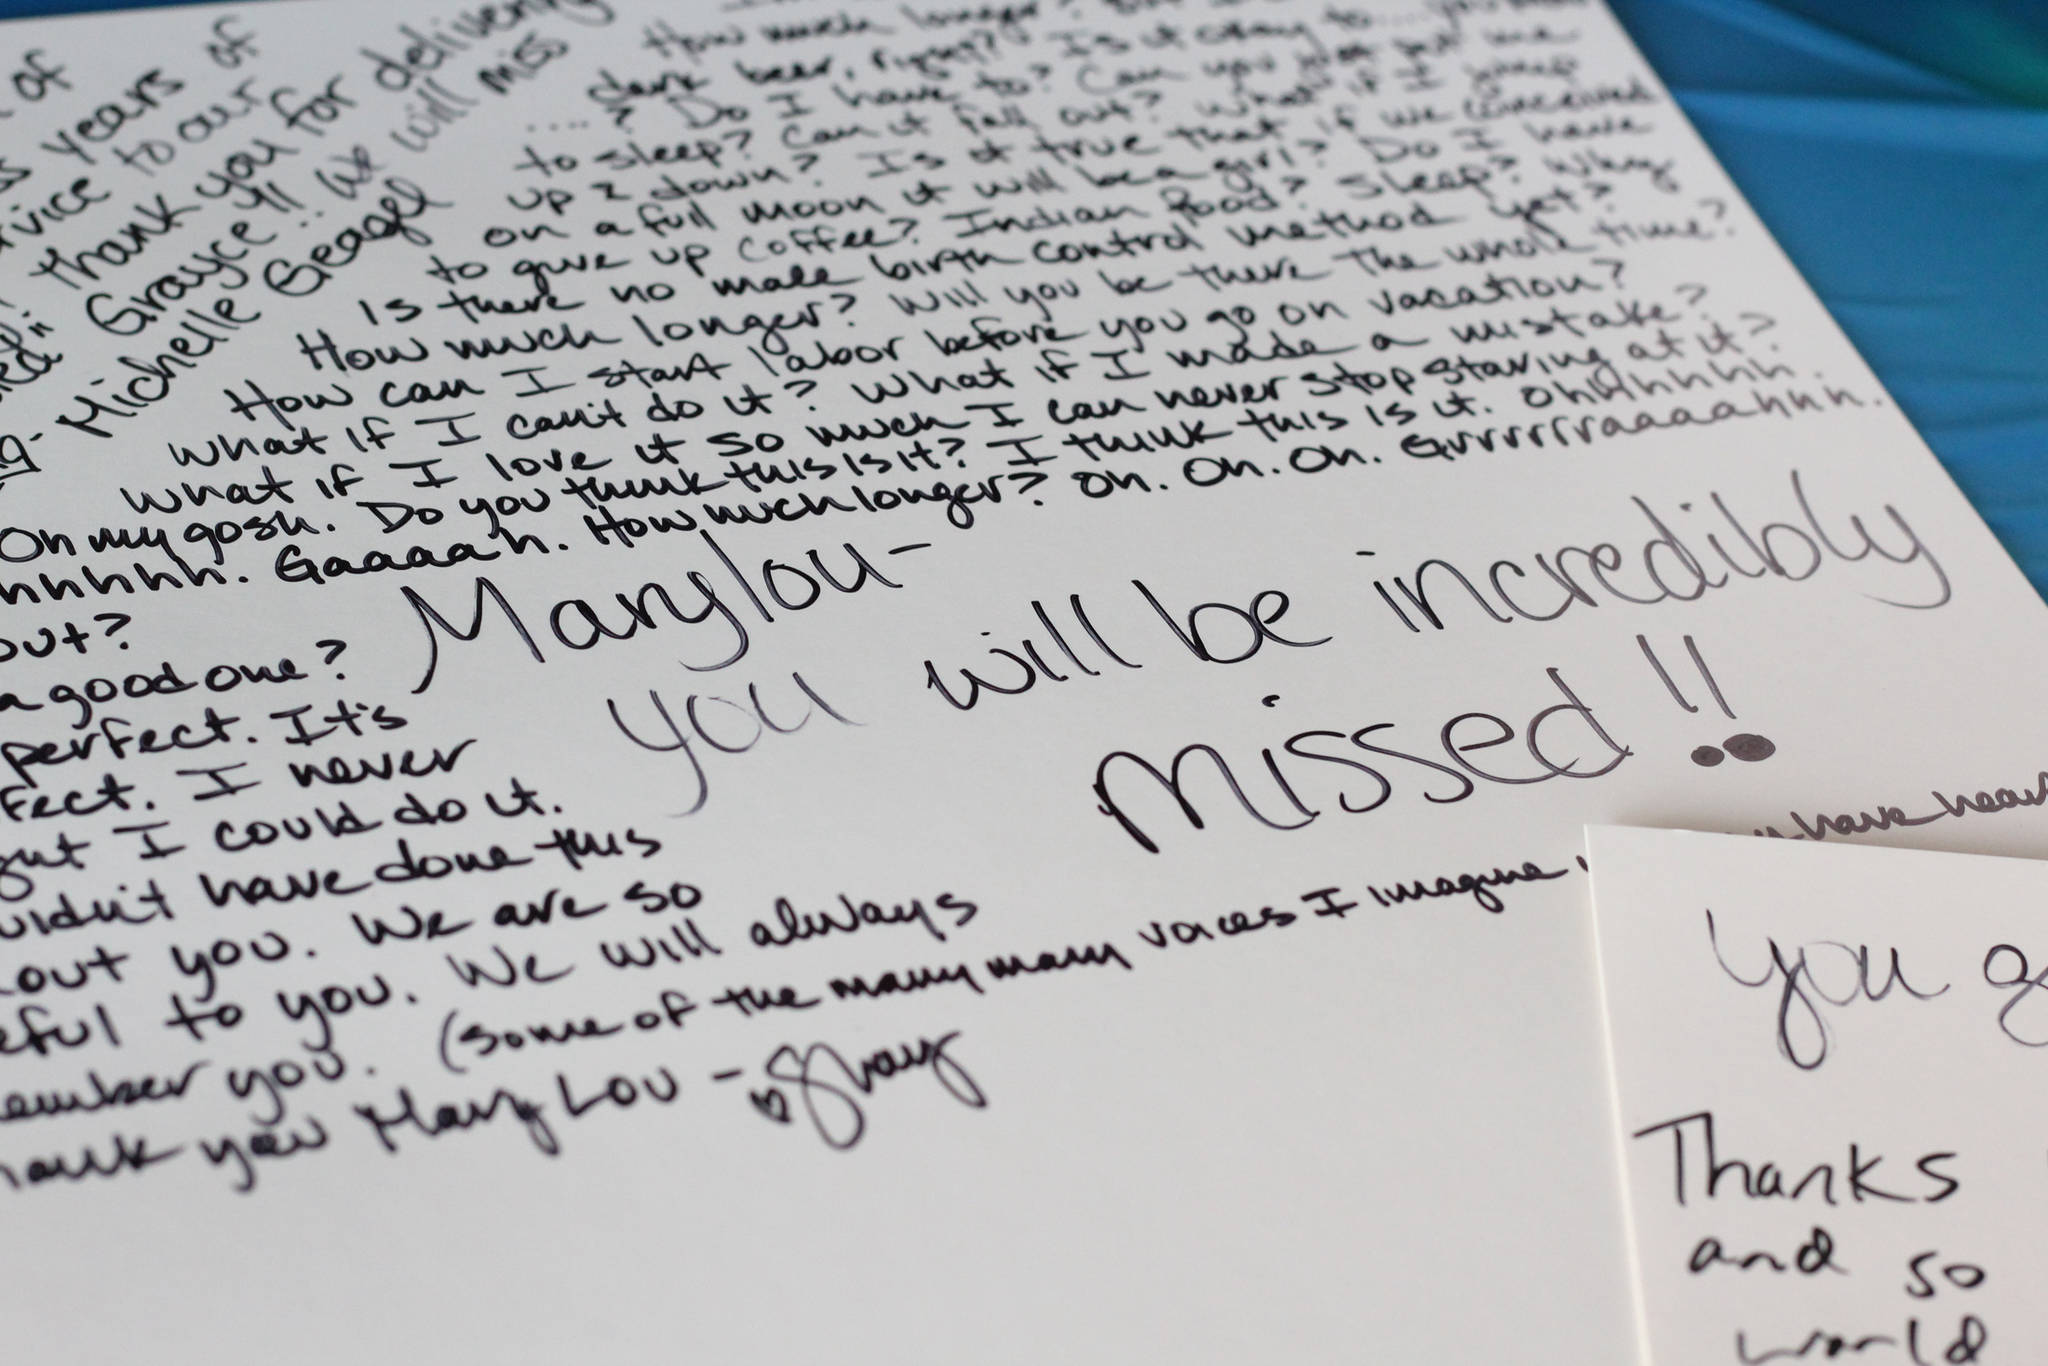 of
years of
service to our
Thank you for delivering
Grayce!! We will miss
- Michelle Geagel
How much longer?
dark beer, right? Is it okay to .... you know
....? Do I have to? Can you just put me
to sleep? Can it fall out? What if I jump
up & down? Is it true that if we conceived
on a full moon it will be a girl? Do I have
to give up coffee? Indian food? Sleep? Why
is there no male birth control method yet?
How much longer? Will you be there the whole time?
How can I start labor before you go on vacation?
What if I can't do it? What if I made a mistake?
What if I love it so much I can never stop staring at it?
Oh my gosh. Do you think this is it? I think this is it. Ohhhhhhh.
hhhhhh. Gaaaaah. How much longer? Oh. Oh. Oh. Grrrrrraaaaahhh.
out?
a good one?
perfect. It's
fect. I never
I could do it.
have done this
out you. We are so
to you. We will always
you. (some of the many many voices I imagine you have hear
you Mary Lou - ♥ Shay
Marylou-
you will be incredibly
missed!!
You
Thanks
and so
world